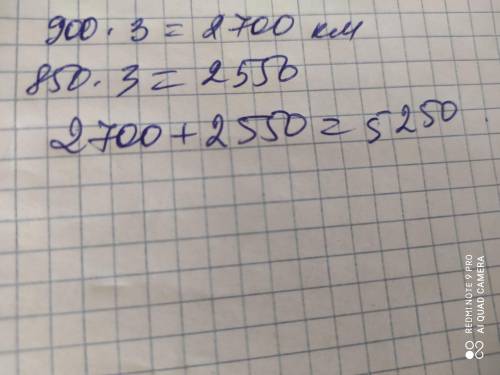 900 · 3 = 2700 км
850 · 3 = 2550
2700 + 2550 = 5250
REDMI NOTE 9 PRO
AI QUAD CAMERA